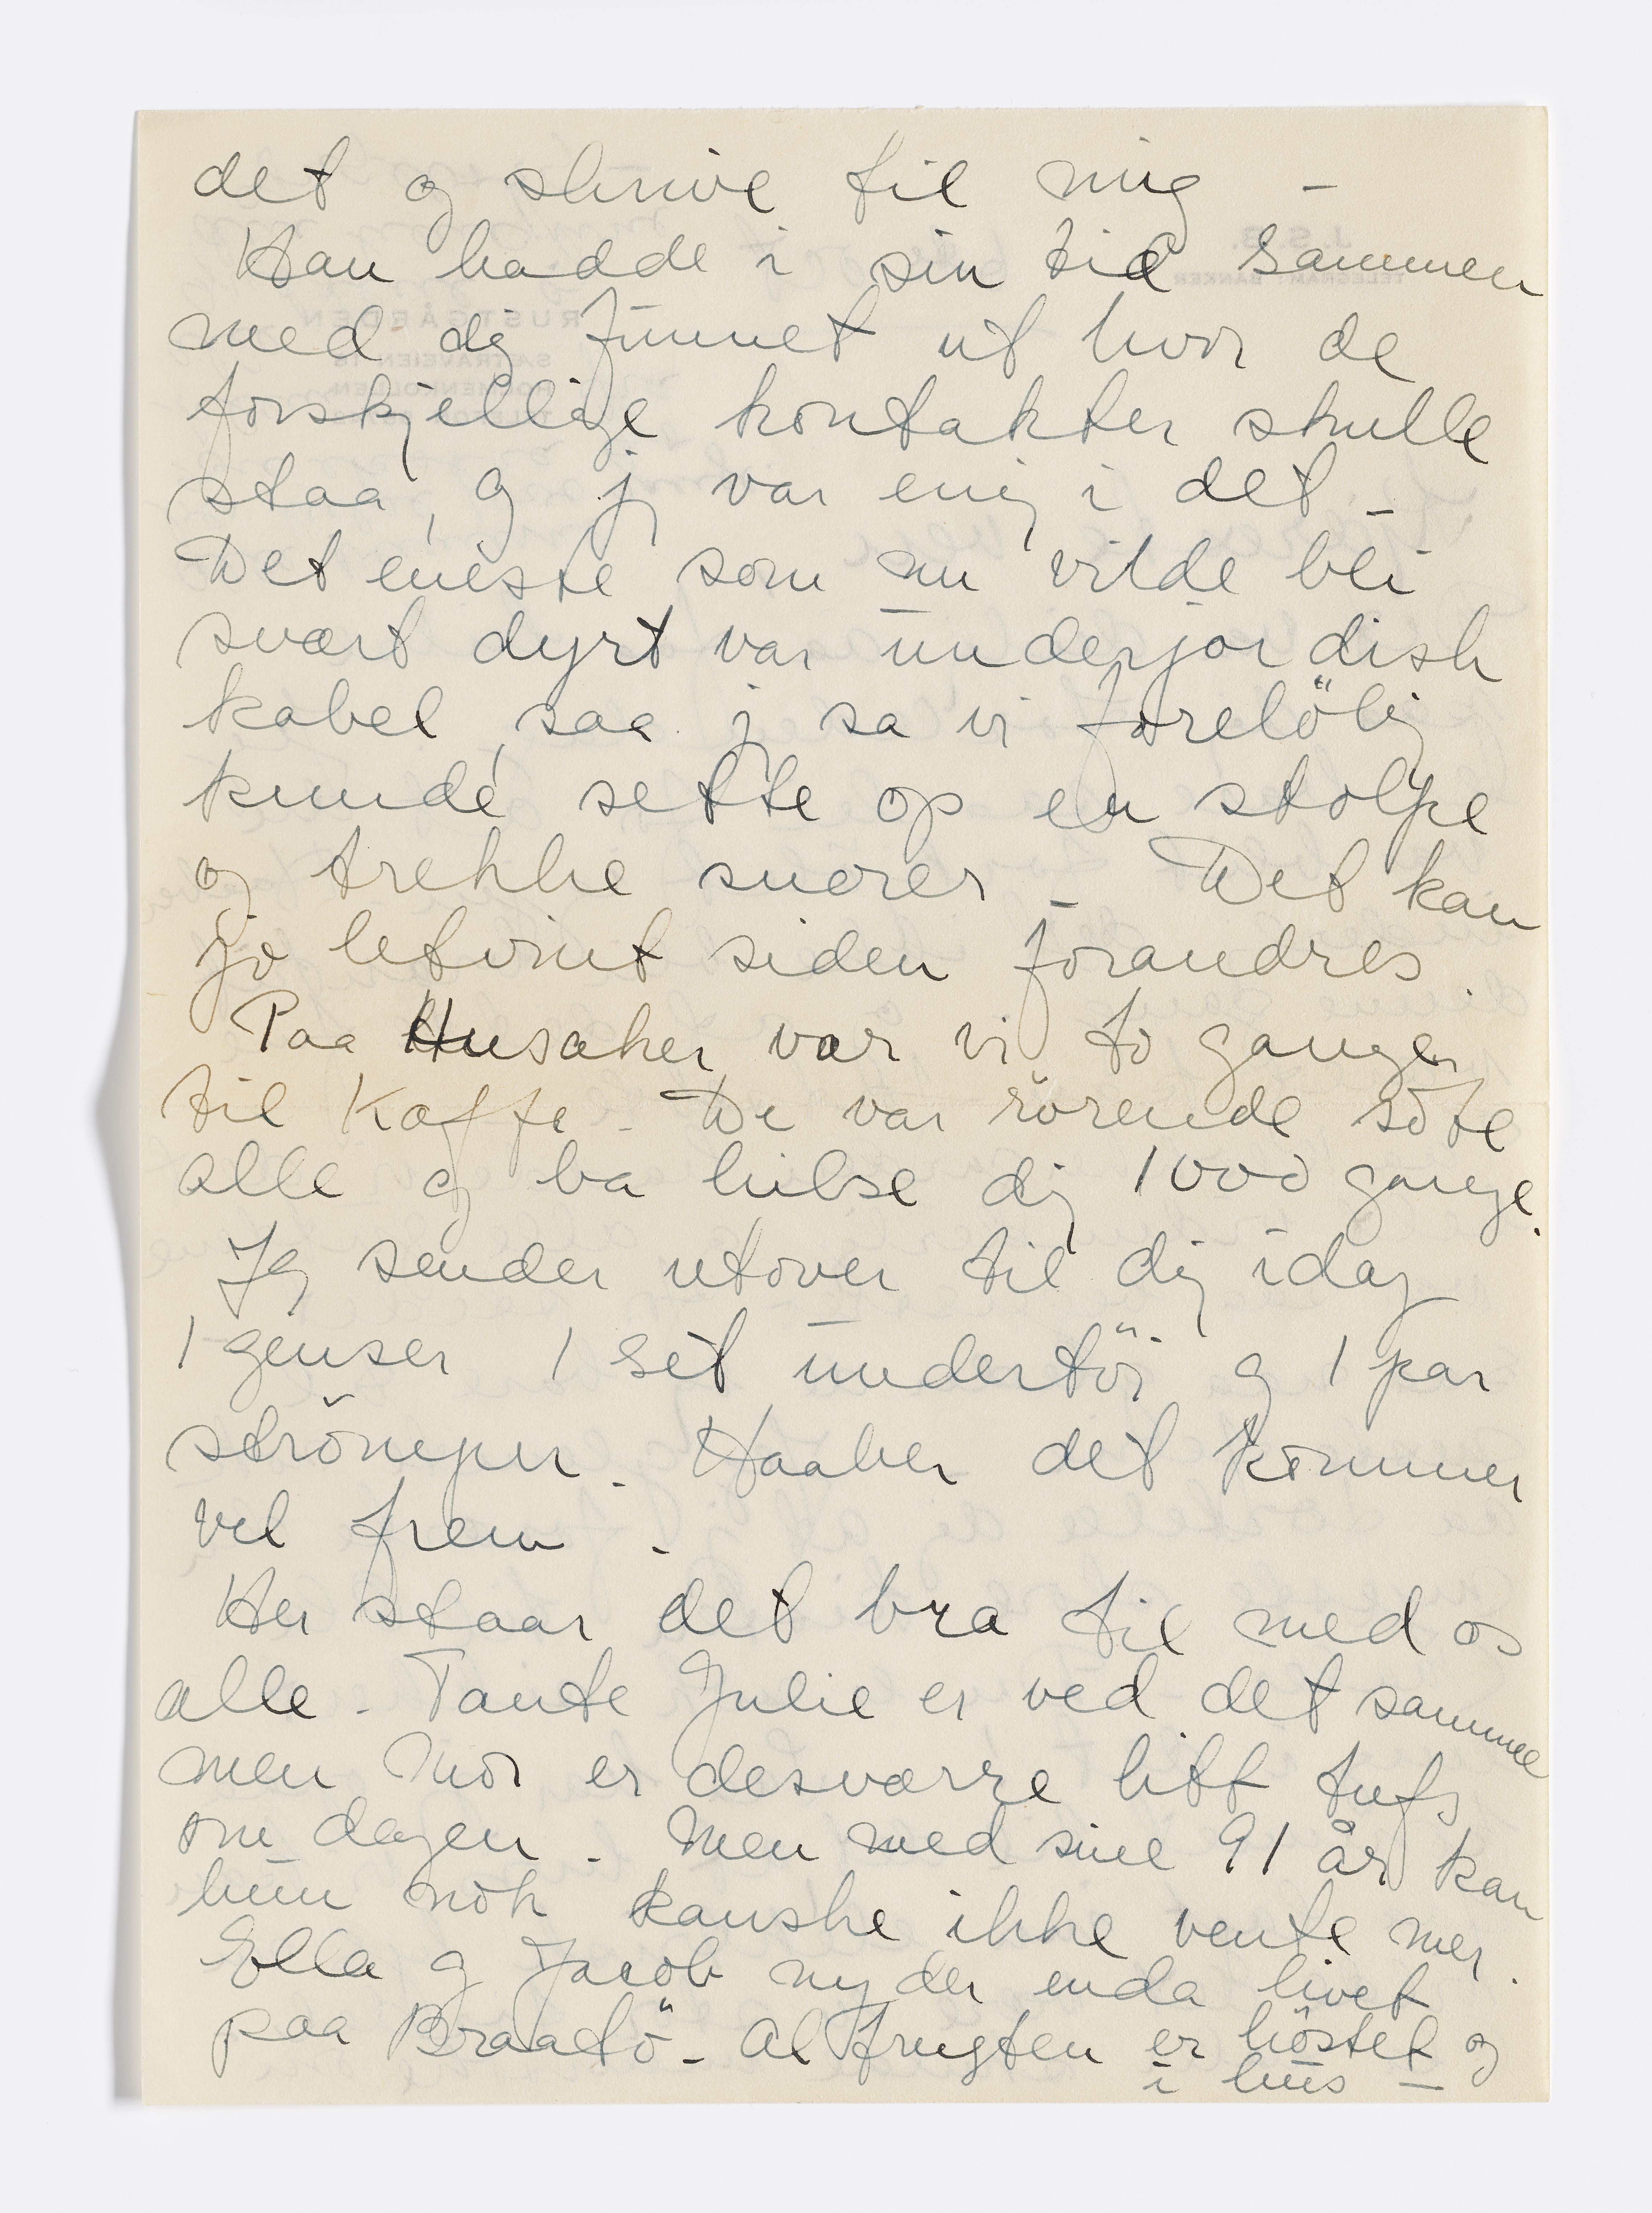 det og skrive til mig –
Han hadde i sin tid sammen
med dig funnet ut hvor de
forskjellige kontakter skulle
staa, og jg var enig i det –
Det eneste som nu vilde bli
svært dyrt var underjordisk
kabel, saa jg sa vi foreløbig
kunde sette op en stolpe
og trekke snorer – Det kan
jo letvint siden forandres.
Paa Husaker var vi to ganger
til Kaffe – De var rörende söte
alle og ba hilse dig 1000 gange.
Jg sender utover til dig idag
1 genser 1 set undertöi og 1 par
strömper. Haaber det kommer
vel frem.
Her staar det bra til med os
alle. Tante Julie er ved det samme
men Mor er desværre litt tufs
om dagen. Men med sine 91 år kan
hun nok kanske ikke vente mer.
Ella og Jacob nyder enda livet
paa Braatö – Al frugten er höstet og
i hus –